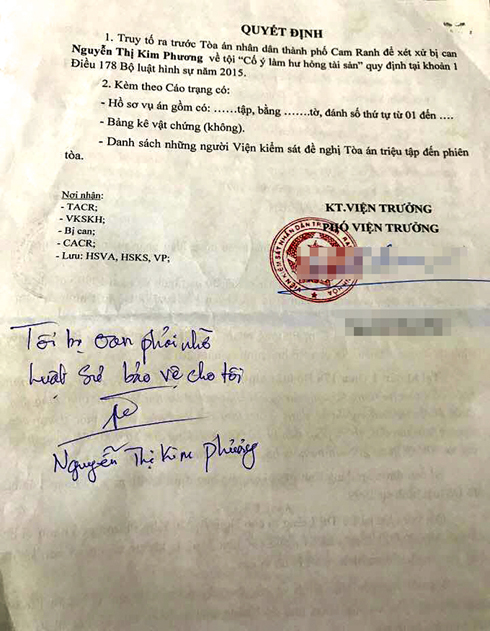 QUYẾT ĐỊNH
1. Truy tố ra trước Tòa án nhân dân thành phố Cam Ranh để xét xử bị can
Nguyễn Thị Kim Phương về tội "Cố ý làm hư hỏng tài sản" quy định tại khoản 1
Điều 178 Bộ luật hình sự năm 2015.
2. Kèm theo Cáo trạng có:
- Hồ sơ vụ án gồm có: ……tập, bằng …..tờ, đánh số thứ tự từ 01 đến ….
- Bảng kê vật chứng (không).
- Danh sách những người Viện kiểm sát đề nghị Tòa án triệu tập đến phiên
tòa.
Nơi nhận:
- TACR;
- VKSKH;
- Bị can;
- CACR;
- Lưu: HSVA, HSKS, VP;
KT.VIỆN TRƯỞNG
PHÓ VIỆN TRƯỞNG
VIỆN KIỂM SÁT NHÂN DÂN
Tôi bị oan phải nhờ
luật sư bảo vệ cho tôi
Nguyễn Thị Kim Phương